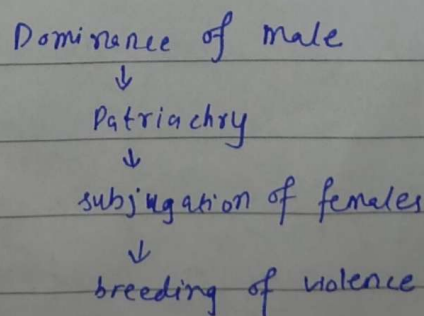 Dominance of male
↓
Patriachry
↓
subjugation of females
↓
breeding of violence